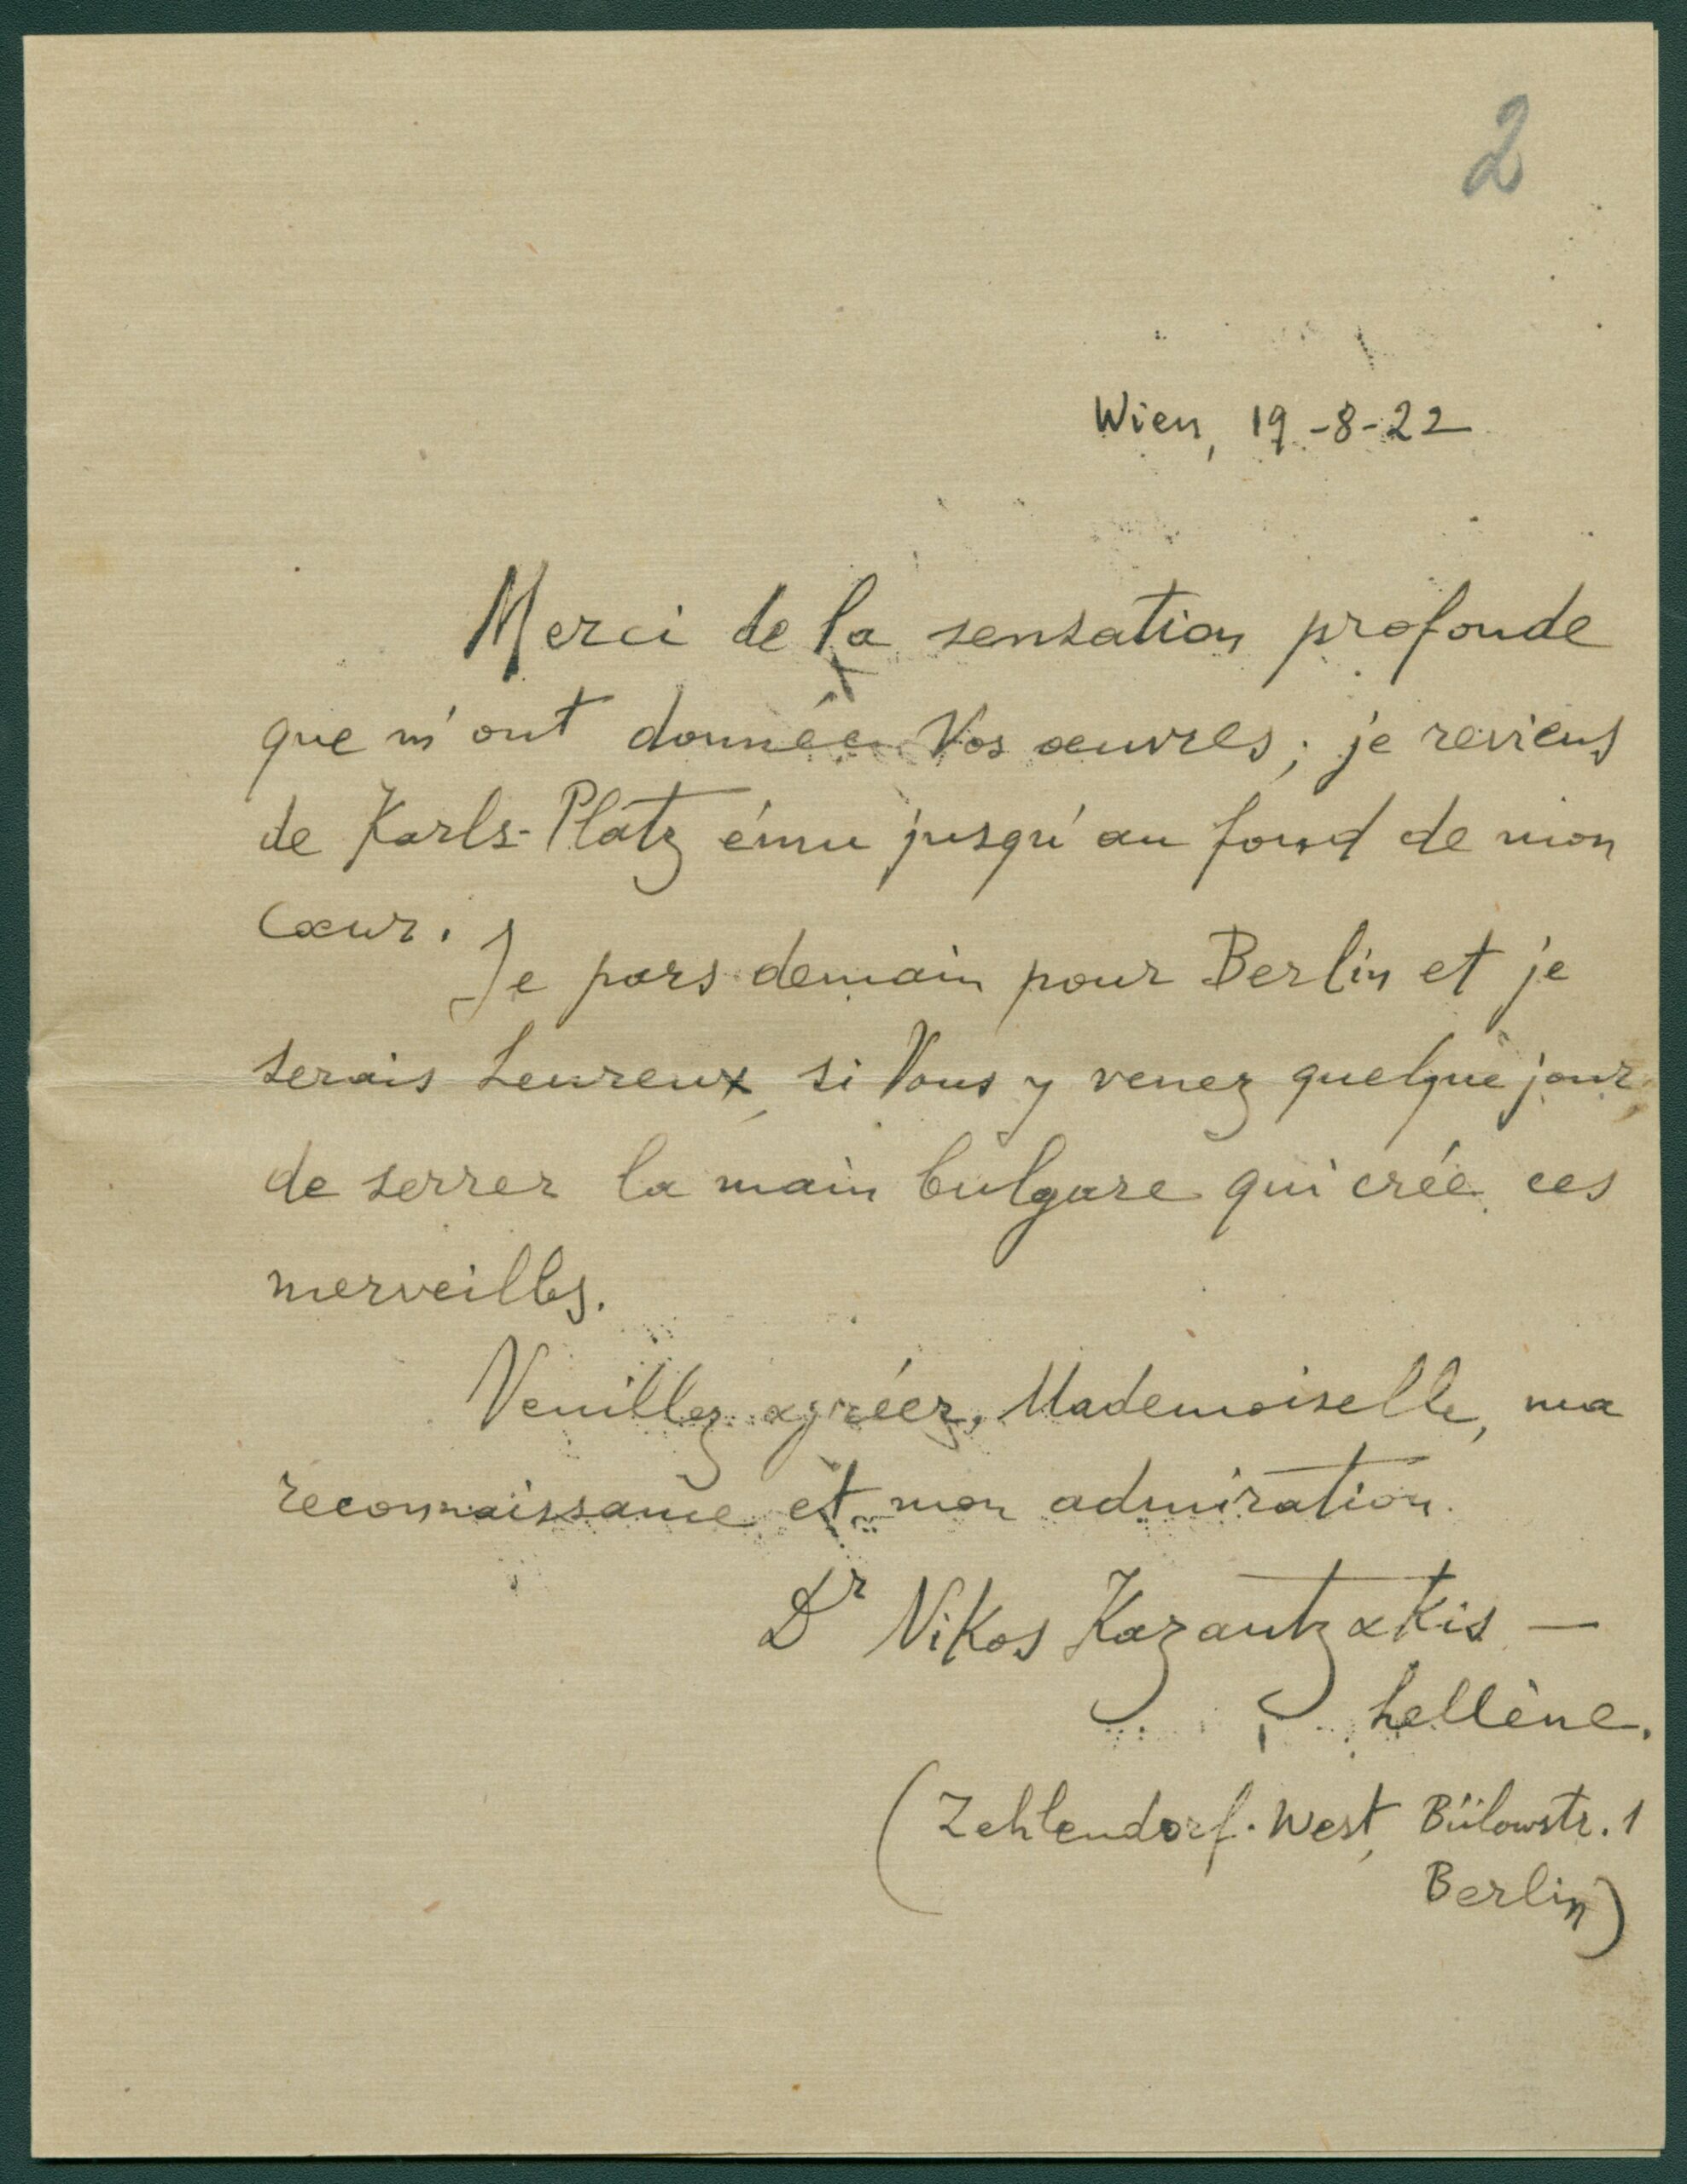 2
Wien, 19-8-22
Merci de la sensation profonde
que m'ont donnée Vos œuvres; je reviens
de Karls-Platz ému jusqu'au fond de mon
cœur.
Je pars demain pour Berlin et je
serais heureux, si Vous y venez quelque jour,
de serrer la main bulgare qui crée ces
merveilles.
Veuillez agréer, Mademoiselle, ma
reconnaissance et mon admiration.
Dr Nikos Kazantzakis —
hellène.
(Zehlendorf-West, Bülowstr. 1
Berlin)